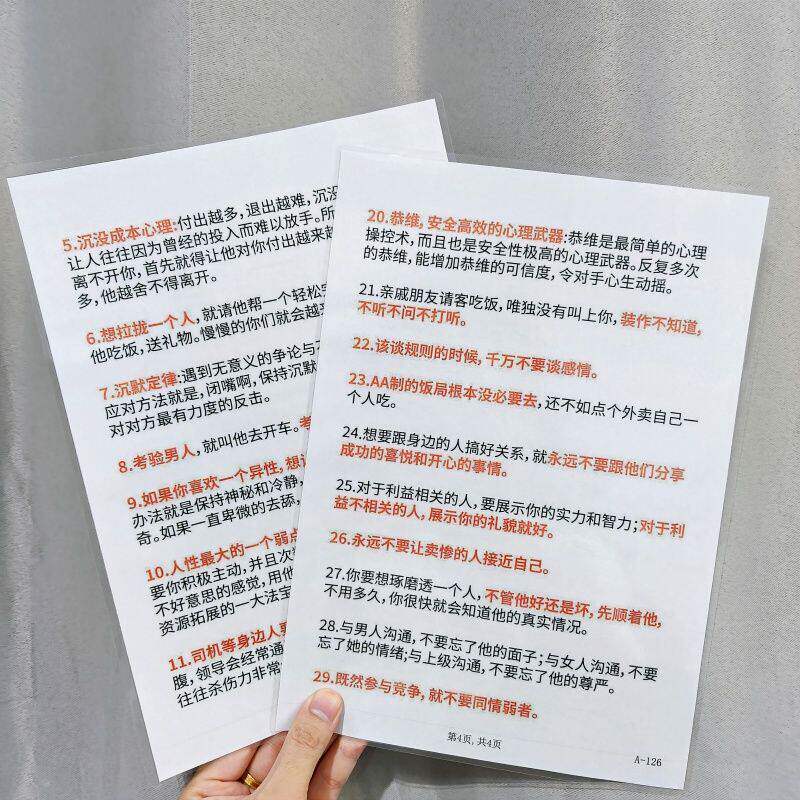 5.沉没成本心理:付出越多,退出越难,沉没
让人往往因为曾经的投入而难以放手。所
离不开你,首先就得让他对你付出越来越
多,他越舍不得离开。
6.想拉拢一个人,就请他帮一个轻松
他吃饭,送礼物。慢慢的你们就会越来
7.沉默定律:遇到无意义的争论与
应对方法就是,闭嘴啊,保持沉默
对对方最有力度的反击。
8.考验男人,就叫他去开车。考
9.如果你喜欢一个异性,想
办法就是保持神秘和冷静,
奇。如果一直卑微的去舔,
10.人性最大的一个弱点
要你积极主动,并且次
不好意思的感觉,用他
资源拓展的一大法宝
11.司机等身边人要
腹,领导会经常通
往往杀伤力非常
20.恭维,安全高效的心理武器:恭维是最简单的心理
操控术,而且也是安全性极高的心理武器。反复多次
的恭维,能增加恭维的可信度,令对手心生动摇。
21.亲戚朋友请客吃饭,唯独没有叫上你,装作不知道,
不听不问不打听。
22.该谈规则的时候,千万不要谈感情。
23.AA制的饭局根本没必要去,还不如点个外卖自己一
个人吃。
24.想要跟身边的人搞好关系,就永远不要跟他们分享
成功的喜悦和开心的事情。
25.对于利益相关的人,要展示你的实力和智力;对于利
益不相关的人,展示你的礼貌就好。
26.永远不要让卖惨的人接近自己。
27.你要想琢磨透一个人,不管他好还是坏,先顺着他,
不用多久,你很快就会知道他的真实情况。
28.与男人沟通,不要忘了他的面子;与女人沟通,不要
忘了她的情绪;与上级沟通,不要忘了他的尊严。
29.既然参与竞争,就不要同情弱者。
第4页,共4页
A-126